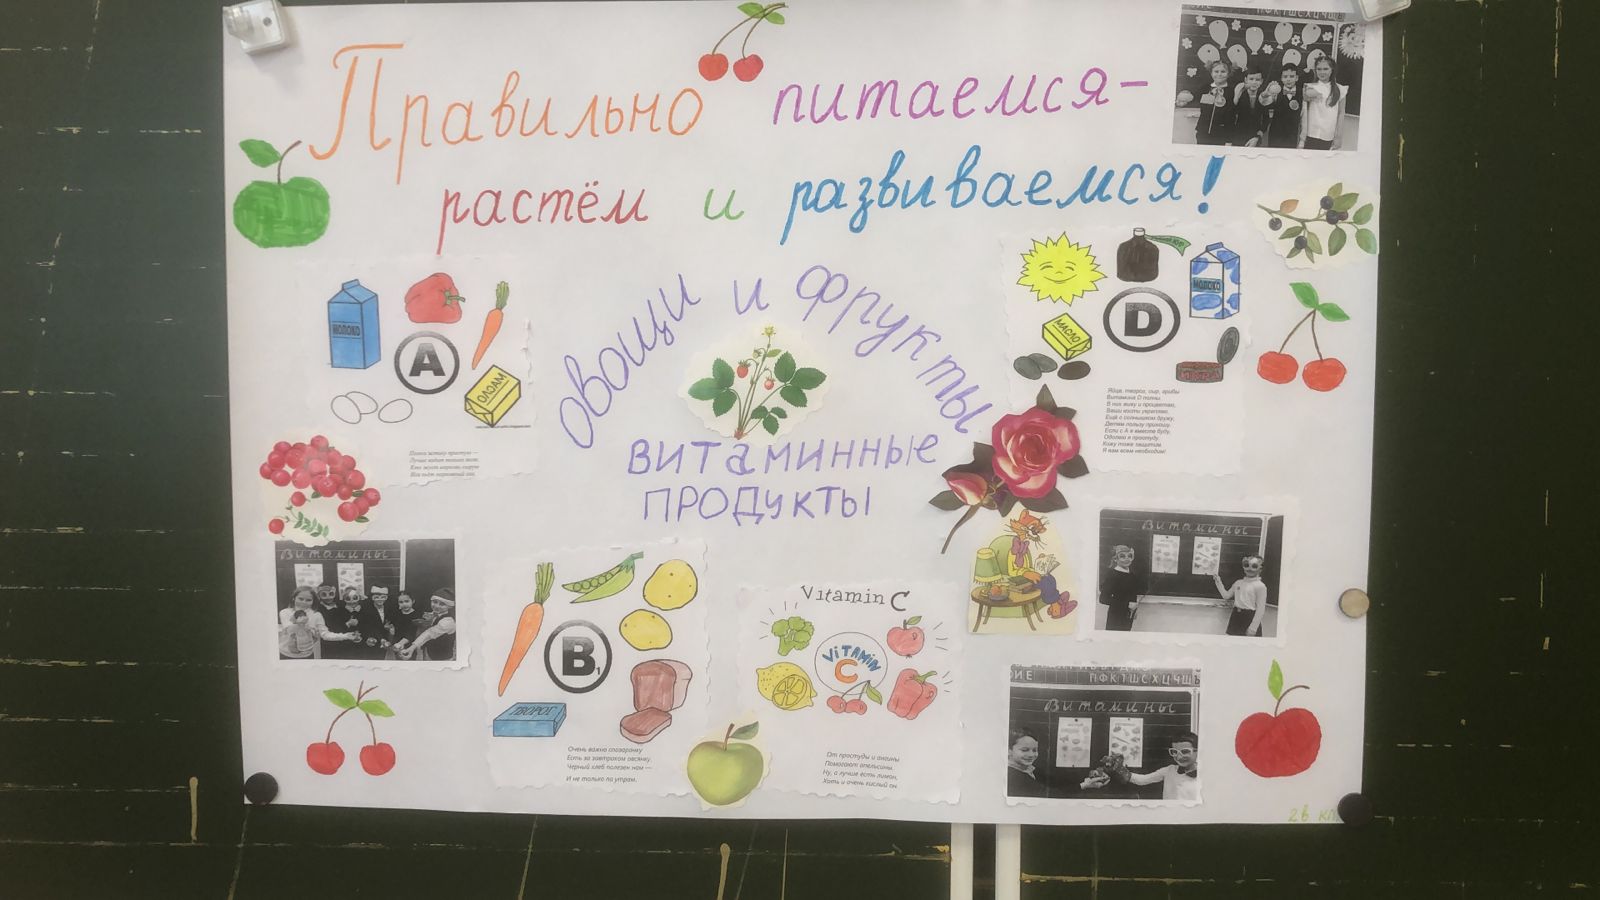 Правильно питаемся-
растём и развиваемся!
овощи и фрукты
витаминные
продукты
МОЛОКО
A
МОЛОКО
D
МАСЛО
ИКРА
Яйца, творог, сыр, грибы
Витамина D полны.
В них живу и процветаю,
Ваши кости укрепляю.
Ещё с солнышком дружу,
Детям пользу приношу.
Если с А я вместе буду,
Одолею я простуду.
Кожу тоже защитим
Я вам всем необходим!
Помни истину простую —
Лучше видит только тот,
Кто жует морковь сырую
Или пьёт морковный сок.
Витамины
Витамины
B1
ТВОРОГ
Очень важно спозаранку
Есть за завтраком овсянку.
Черный хлеб полезен нам —
И не только по утрам.
Vitamin C
VITAMIN
C
От простуды и ангины
Помогают апельсины.
Ну, а лучше есть лимон,
Хоть и очень кислый он.
ПФКТШСХЦЧЩЬ
Витамины
2в кл